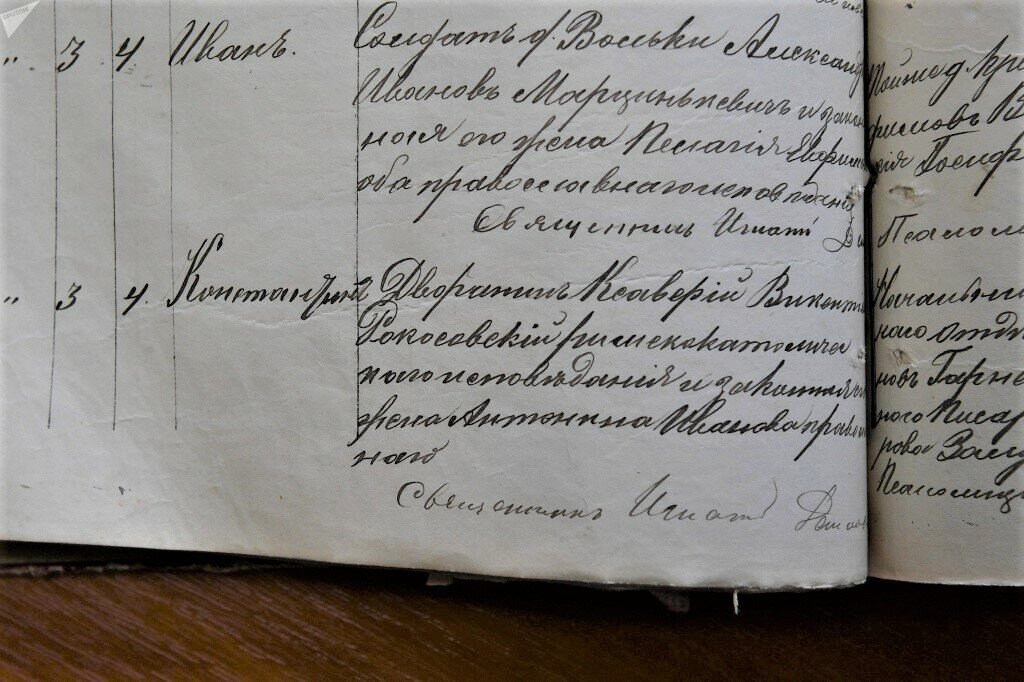 SPUTNIK
" 3 4. Иванъ. Солдатъ д. Вольки Александ
Ивановъ Марцинькевичъ и закон
ная его жена Пелагія Ефрим
оба православнаго исповѣданія
Священникъ Игнатій
" 3 4. Константинъ Дворянинъ Ксаверій Викент
Рокосовскій римскокатоличес
каго исповѣданія и законная его
жена Антонина Иванова правос
наго
Священникъ Игнатій
Іосиф
Псалом
Началь
наго отдѣ
новъ
наго Писар
рова
Псаломщ